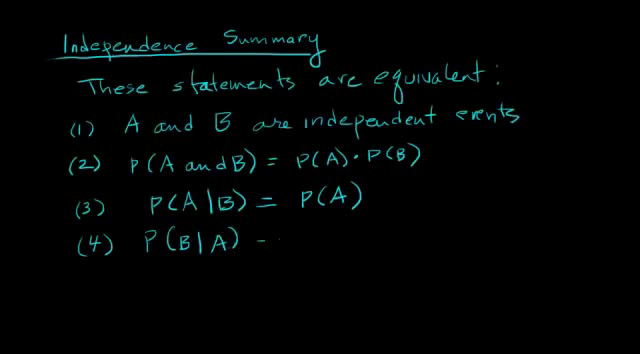 Independence Summary
These statements are equivalent:
(1) A and B are independent events
(2) P(A and B) = P(A) · P(B)
(3) P(A|B) = P(A)
(4) P(B|A) -